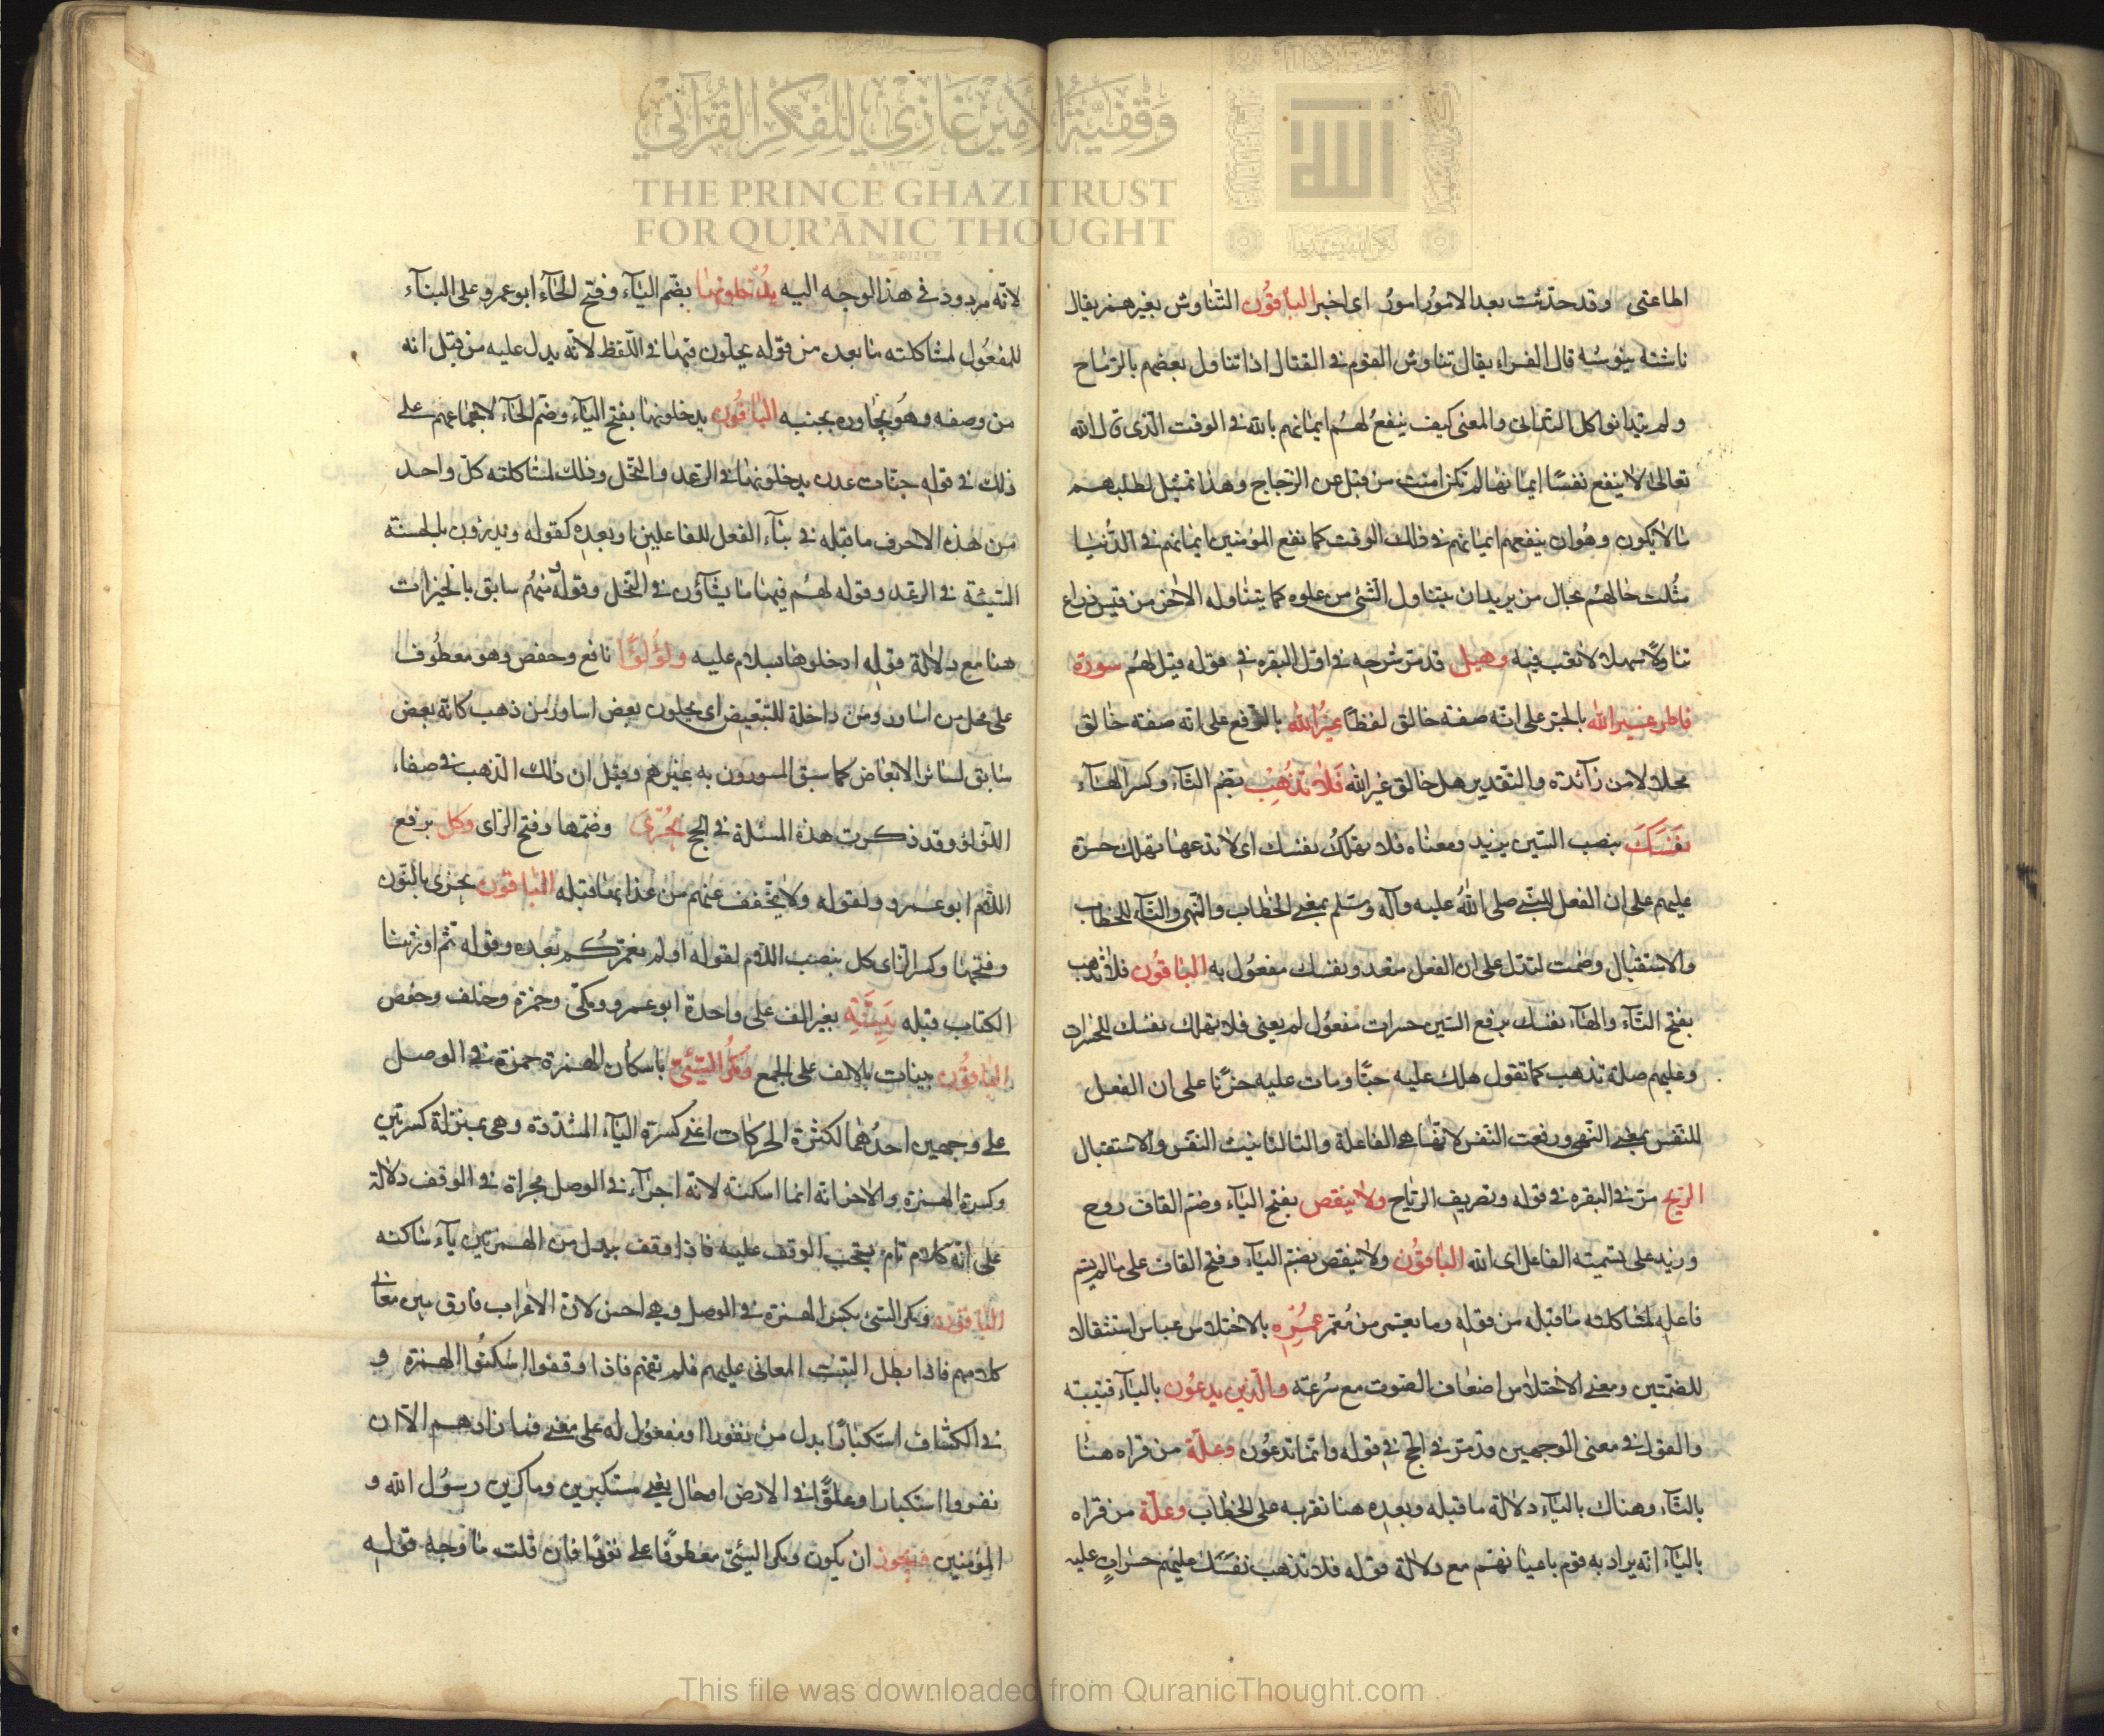 وقفية الأمير غازي للفكر القرآني
THE PRINCE GHAZI TRUST
FOR QUR'ĀNIC THOUGHT
اطاعنى وقد حدثت بعد الامور امور اى اخير الباقون التناوش بغير همز يقال
ناشه ينوشه قال الفراء يقال تناوش القوم فى القتال اذا تناول بعضهم بالرماح
ولم يتدانوا كل التدانى والمعنى كيف ينفع لهم ايمانهم بالله فى الوقت الذى قال الله
تعالى لا ينفع نفسا ايمانها لم تكن امنت من قبل عن الزجاج وهذا تمثيل لطلبهم
مالا يكون وهوان ينفعهم ايمانهم فى ذلك الوقت كما نفع المؤمنين ايمانهم فى الدنيا
مثلت حالهم بحال من يريد ان يتناول الشئ من علوه كما يتناوله الاخر من قيس ذراع
تناولا سهلا لا تعب فيه وحيل قد مر شرحه فى اول البقره فى قوله قيل لهم سورة
فاطر غير الله بالجر على انه صفة خالق لفظا غير الله بالرفع على انه صفة خالق
محلا لا من زائدة والتقدير هل خالق غير الله فلا تذهب بضم التاء وكسر الهاء
نفسك بنصب السين يزيد ومعناه فلا تهلك نفسك اى لا تدعها تهلك حسرة
عليهم على ان الفعل للنبى صلى الله عليه وآله وسلم بمعنى الخطاب والنهى والتاء للخطاب
والاستقبال وضمت لتدل على ان الفعل متعد ونفسك مفعول به الباقون فلا تذهب
بفتح التاء والهاء نفسك برفع السين حسرات مفعول له يعنى فلا تهلك نفسك للحسرات
وعليهم صلة تذهب كما تقول هلك عليه حبا ومات عليه حزنا على ان الفعل
للنفس بمعنى النهى ورفعت النفس لانها هى الفاعلة والتا لتانيث النفس والاستقبال
الريح مر فى البقره فى قوله وتصريف الرياح ولا ينقص بفتح الياء وضم القاف روح
وزيد على تسمية الفاعل اى الله الباقون ولا ينقص بضم الياء وفتح القاف على مالم يسم
فاعله لمشاكلته ما قبله من قوله وما يعمر من معمر عمره بالاختلاس عباس استثقالا
للضمتين ومعنى الاختلاس اضعاف الصوت مع سرعته والذين يدعون بالياء قتيبة
والقول فى معنى الوجهين قد مر فى الحج فى قوله وانما تدعون وعلة من قراه هنا
بالتاء وهناك بالياء دلالة ما قبله وبعده هنا تقربه على الخطاب وعلة من قراه
بالياء انه يراد به قوم باعيانهم مع دلالة قوله فلا تذهب نفسك عليهم حسرات عليه
لانه مردود فى هذا الوجه اليه يدخلونها بضم الياء وفتح الخاء ابو عمرو على البناء
للمفعول لمشاكلته ما بعده من قوله يحلون فيها فى اللفظ لانه يدل عليه من قبل انه
من وصفه وهو يجاوره بجنبه الباقون يدخلونها بفتح الياء وضم الخاء لاجماعهم على
ذلك فى قوله جنات عدن يدخلونها فى الرعد والنحل وذلك لمشاكلته كل واحد
من هذه الاحرف ما قبله فى بناء الفعل للفاعلين او بعده كقوله ويدرؤن بالحسنة
السيئة فى الرعد وقوله لهم فيها ما يشآؤن فى النحل وقوله منهم سابق بالخيرات
هنا مع دلالة قوله ادخلوها بسلام عليه ولؤلؤا نافع وحفص وهو معطوف
على محل من اساور ومن داخلة للتبعيض اى يحلون بعض اساور من ذهب كانه بعض
سابق لسائر الابعاض كما سبق المسورون به غيرهم وقيل ان ذلك الذهب فى صفاء
اللؤلؤ وقد ذكرت هذه المسئلة فى الحج يجزى وضمها وفتح الزاى وكل برفع
اللام ابو عمرو ولقوله ولا يخفف عنهم من عذابها قبله الباقون نجزى بالنون
وفتحها وكسر الزاى كل بنصب اللام لقوله اولم نعمركم بعده وقوله ثم اورثنا
الكتاب قبله بينة بغير الف على واحدة ابو عمرو ومكى وحمزة وخلف وحفص
الباقون بينات بالالف على الجمع ومكر السيئ باسكان الهمزة حمزة فى الوصل
على وجهين احدهما لكثرة الحركات اعنى كسرة الياء المشددة وهى بمنزلة كسرتين
وكسرة الهمزة والاخر انه انما اسكنه لانه اجراء فى الوصل مجراة فى الوقف دلالة
على انه كلام تام يحب الوقف عليه فاذا وقف بدل من الهمزتين ياء ساكنة
الباقون ومكر السيئ بكسر الهمزة فى الوصل وهى احسن لان الاعراب فارق بين معانى
كلامهم فاذا بطل التبست المعانى عليهم فلم تفهم فاذا وقفوا اسكنوا الهمزة و
فى الكشاف استكبارا بدل من نفورا او مفعول له على معنى فما زادهم الا ان
نفروا استكبارا وعلوا فى الارض او حال يعنى مستكبرين وماكرين رسول الله و
المؤمنين فيجوز ان يكون ومكر السيئ معطوفا على نفورا فان قلت ما وجه قوله
This file was downloaded from QuranicThought.com